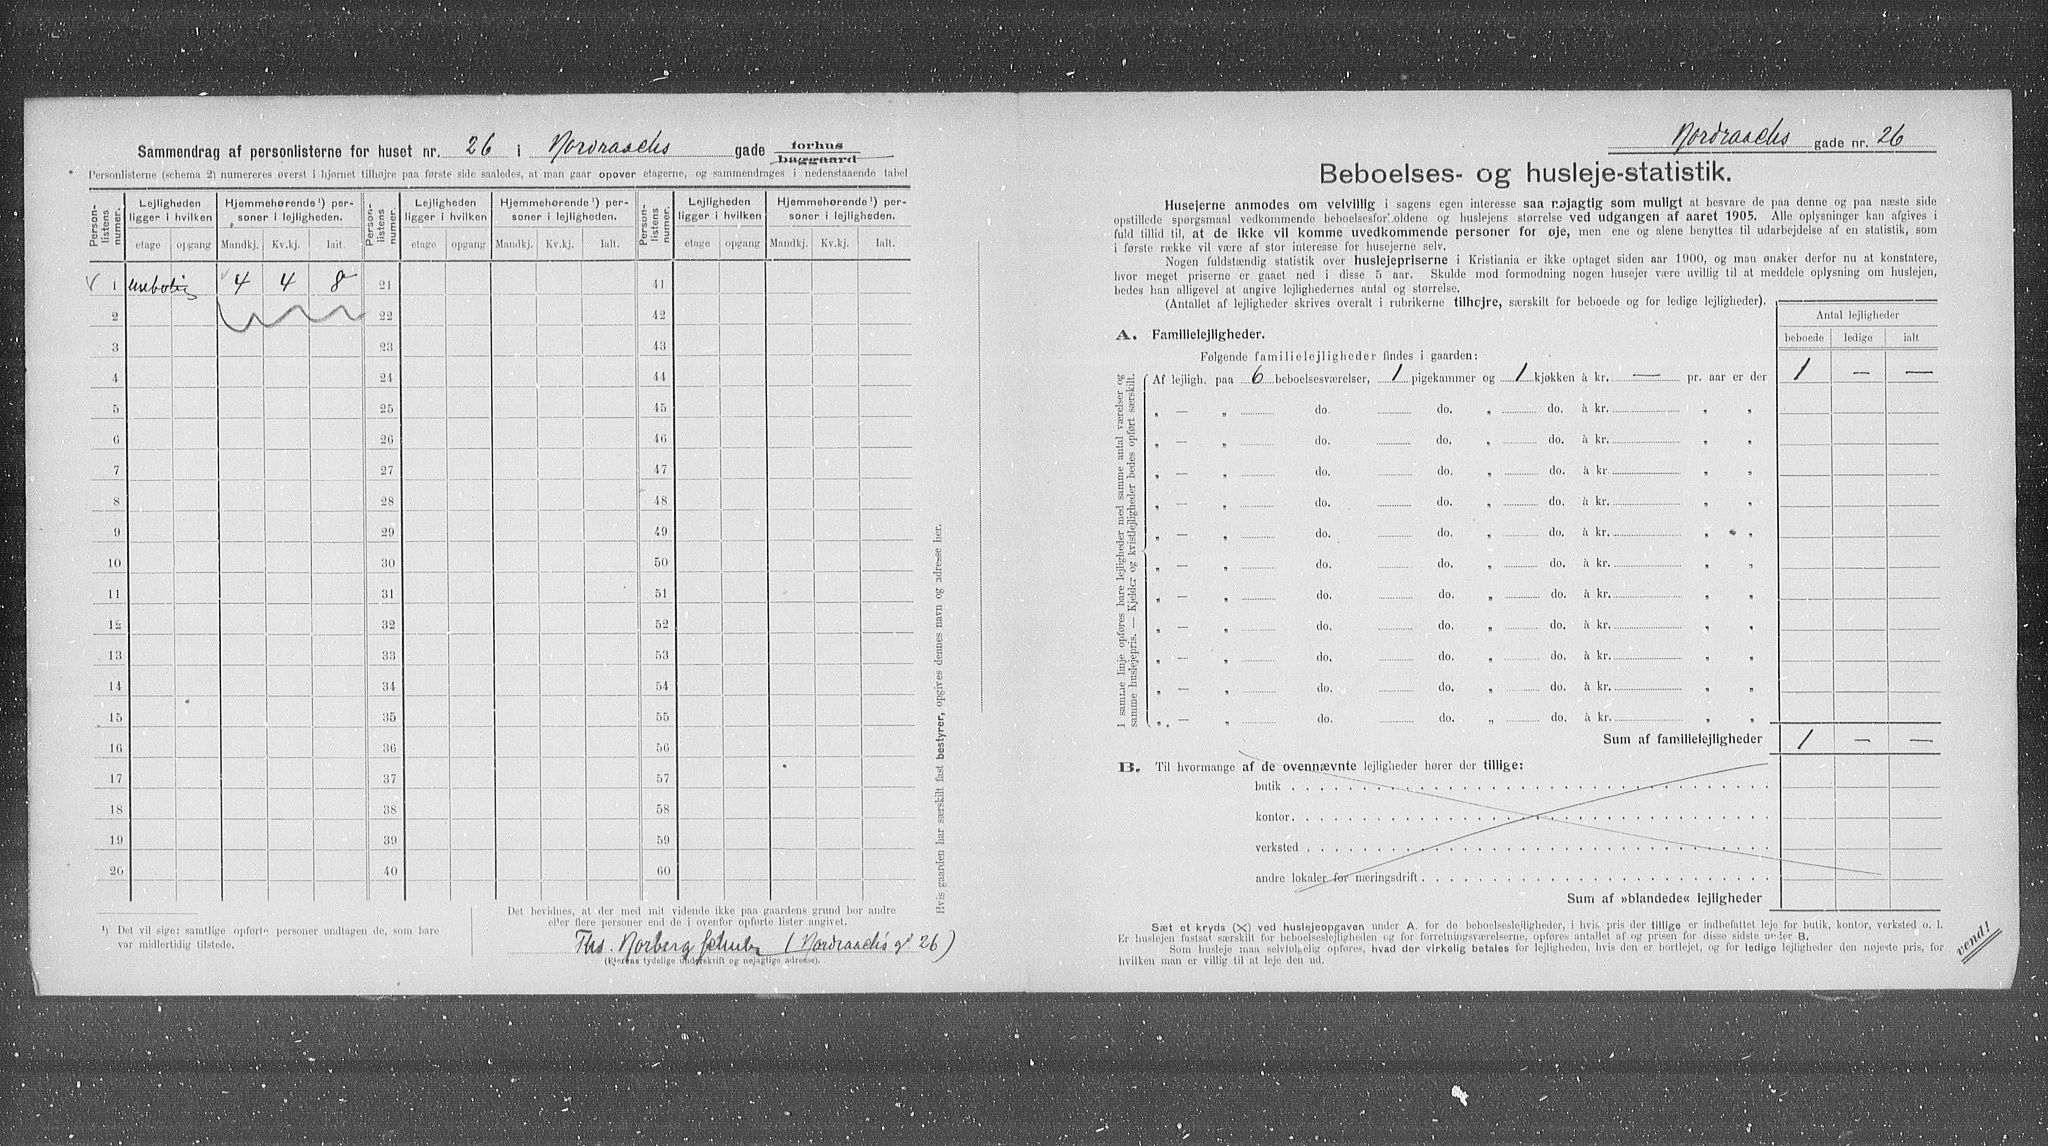 Sammendrag af personlisterne for huset nr. 26 i Nordraachs gade forhus baggaard
Personlisterne (schema 2) numereres øverst i hjørnet tilhøjre paa første side saaledes, at man gaar opover etagerne, og sammendrages i nedenstaaende tabel
Person-listens nummer. Lejligheden ligger i hvilken Hjemmehørende¹) personer i lejligheden. Person-listens nummer. Lejligheden ligger i hvilken Hjemmehørende¹) personer i lejligheden. Person-listens nummer. Lejligheden ligger i hvilken Hjemmehørende¹) personer i lejligheden.
etage opgang Mandkj. Kv.kj. Ialt. etage opgang Mandkj. Kv.kj. Ialt. etage opgang Mandkj. Kv.kj. Ialt.
1 4 4 8 21 41
2 22 42
3 23 43
4 24 44
5 25 45
6 26 46
7 27 47
8 28 48
9 29 49
10 30 50
11 31 51
12 32 52
13 33 53
14 34 54
15 35 55
16 36 56
17 37 57
18 38 58
19 39 59
20 40 60
¹) Det vil sige: samtlige opførte personer undtagen de, som bare
var midlertidig tilstede.
Det bevidnes, at der med mit vidende ikke paa gaardens grund bor andre
eller flere personer end de i ovenfor opførte lister angivet.
Ths. Norberg (Nordraachs g. 26)
(Ejerens tydelige underskrift og nøjagtige adresse).
Hvis gaarden har særskilt fast bestyrer, opgives dennes navn og adresse her.
Nordraachs gade nr. 26
Beboelses- og husleje-statistik.
Husejerne anmodes om velvillig i sagens egen interesse saa nøjagtig som muligt at besvare de paa denne og paa næste side
opstillede spørgsmaal vedkommende beboelsesforholdene og huslejens størrelse ved udgangen af aaret 1905. Alle oplysninger kan afgives i
fuld tillid til, at de ikke vil komme uvedkommende personer for øje, men ene og alene benyttes til udarbejdelse af en statistik, som
i første række vil være af stor interesse for husejerne selv.
Nogen fuldstændig statistik over huslejepriserne i Kristiania er ikke optaget siden aar 1900, og man ønsker derfor nu at konstatere,
hvor meget priserne er gaaet ned i disse 5 aar. Skulde mod formodning nogen husejer være uvillig til at meddele oplysning om huslejen,
bedes han alligevel at angive lejlighedernes antal og størrelse.
(Antallet af lejligheder skrives overalt i rubrikerne tilhøjre, særskilt for beboede og for ledige lejligheder).
Antal lejligheder
beboede ledige ialt
A. Familielejligheder.
Følgende familielejligheder findes i gaarden:
I samme linje opføres bare lejligheder med samme antal værelser og
samme huslejepris. — Kjelder- og kvistlejligheder bedes opført særskilt.
Af lejligh. paa 6 beboelsesværelser, 1 pigekammer og 1 kjøkken à kr. — pr. aar er der 1 — —
„ — „ do. do. „ do. à kr. „ „
„ — „ do. do. „ do. à kr. „ „
„ — „ do. do. „ do. à kr „ „
„ — „ do. do. „ do. à kr. „ „
„ — „ do. do. „ do. à kr. „ „
„ — „ do. do. „ do. à kr. „ „
„ — „ do. do. „ do. à kr. „ „
„ — „ do. do. „ do. à kr. „ „
„ — „ do. do. „ do. à kr. „ „
„ — „ do. do. „ do. à kr. „ „
„ — „ do. do. „ do. à kr. „ „
Sum af familielejligheder 1 — —
B. Til hvormange af de ovennævnte lejligheder hører der tillige:
butik
kontor
verksted
andre lokaler for næringsdrift
Sum af »blandede« lejligheder
Sæt et kryds (×) ved huslejeopgaven under A. for de beboelseslejligheder, i hvis pris der tillige er indbefattet leje for butik, kontor, verksted o. l.
Er huslejen fastsat særskilt for beboelseslejligheden og for forretningsværelserne, opføres antallet af og prisen for disse sidste under B.
Som husleje maa selvfølkelig opføres, hvad der virkelig betales for lejligheden, hvis den er bortlejet, og for ledige lejligheder den nøjeste pris, for
hvilken man er villig til at leje den ud.
vend!